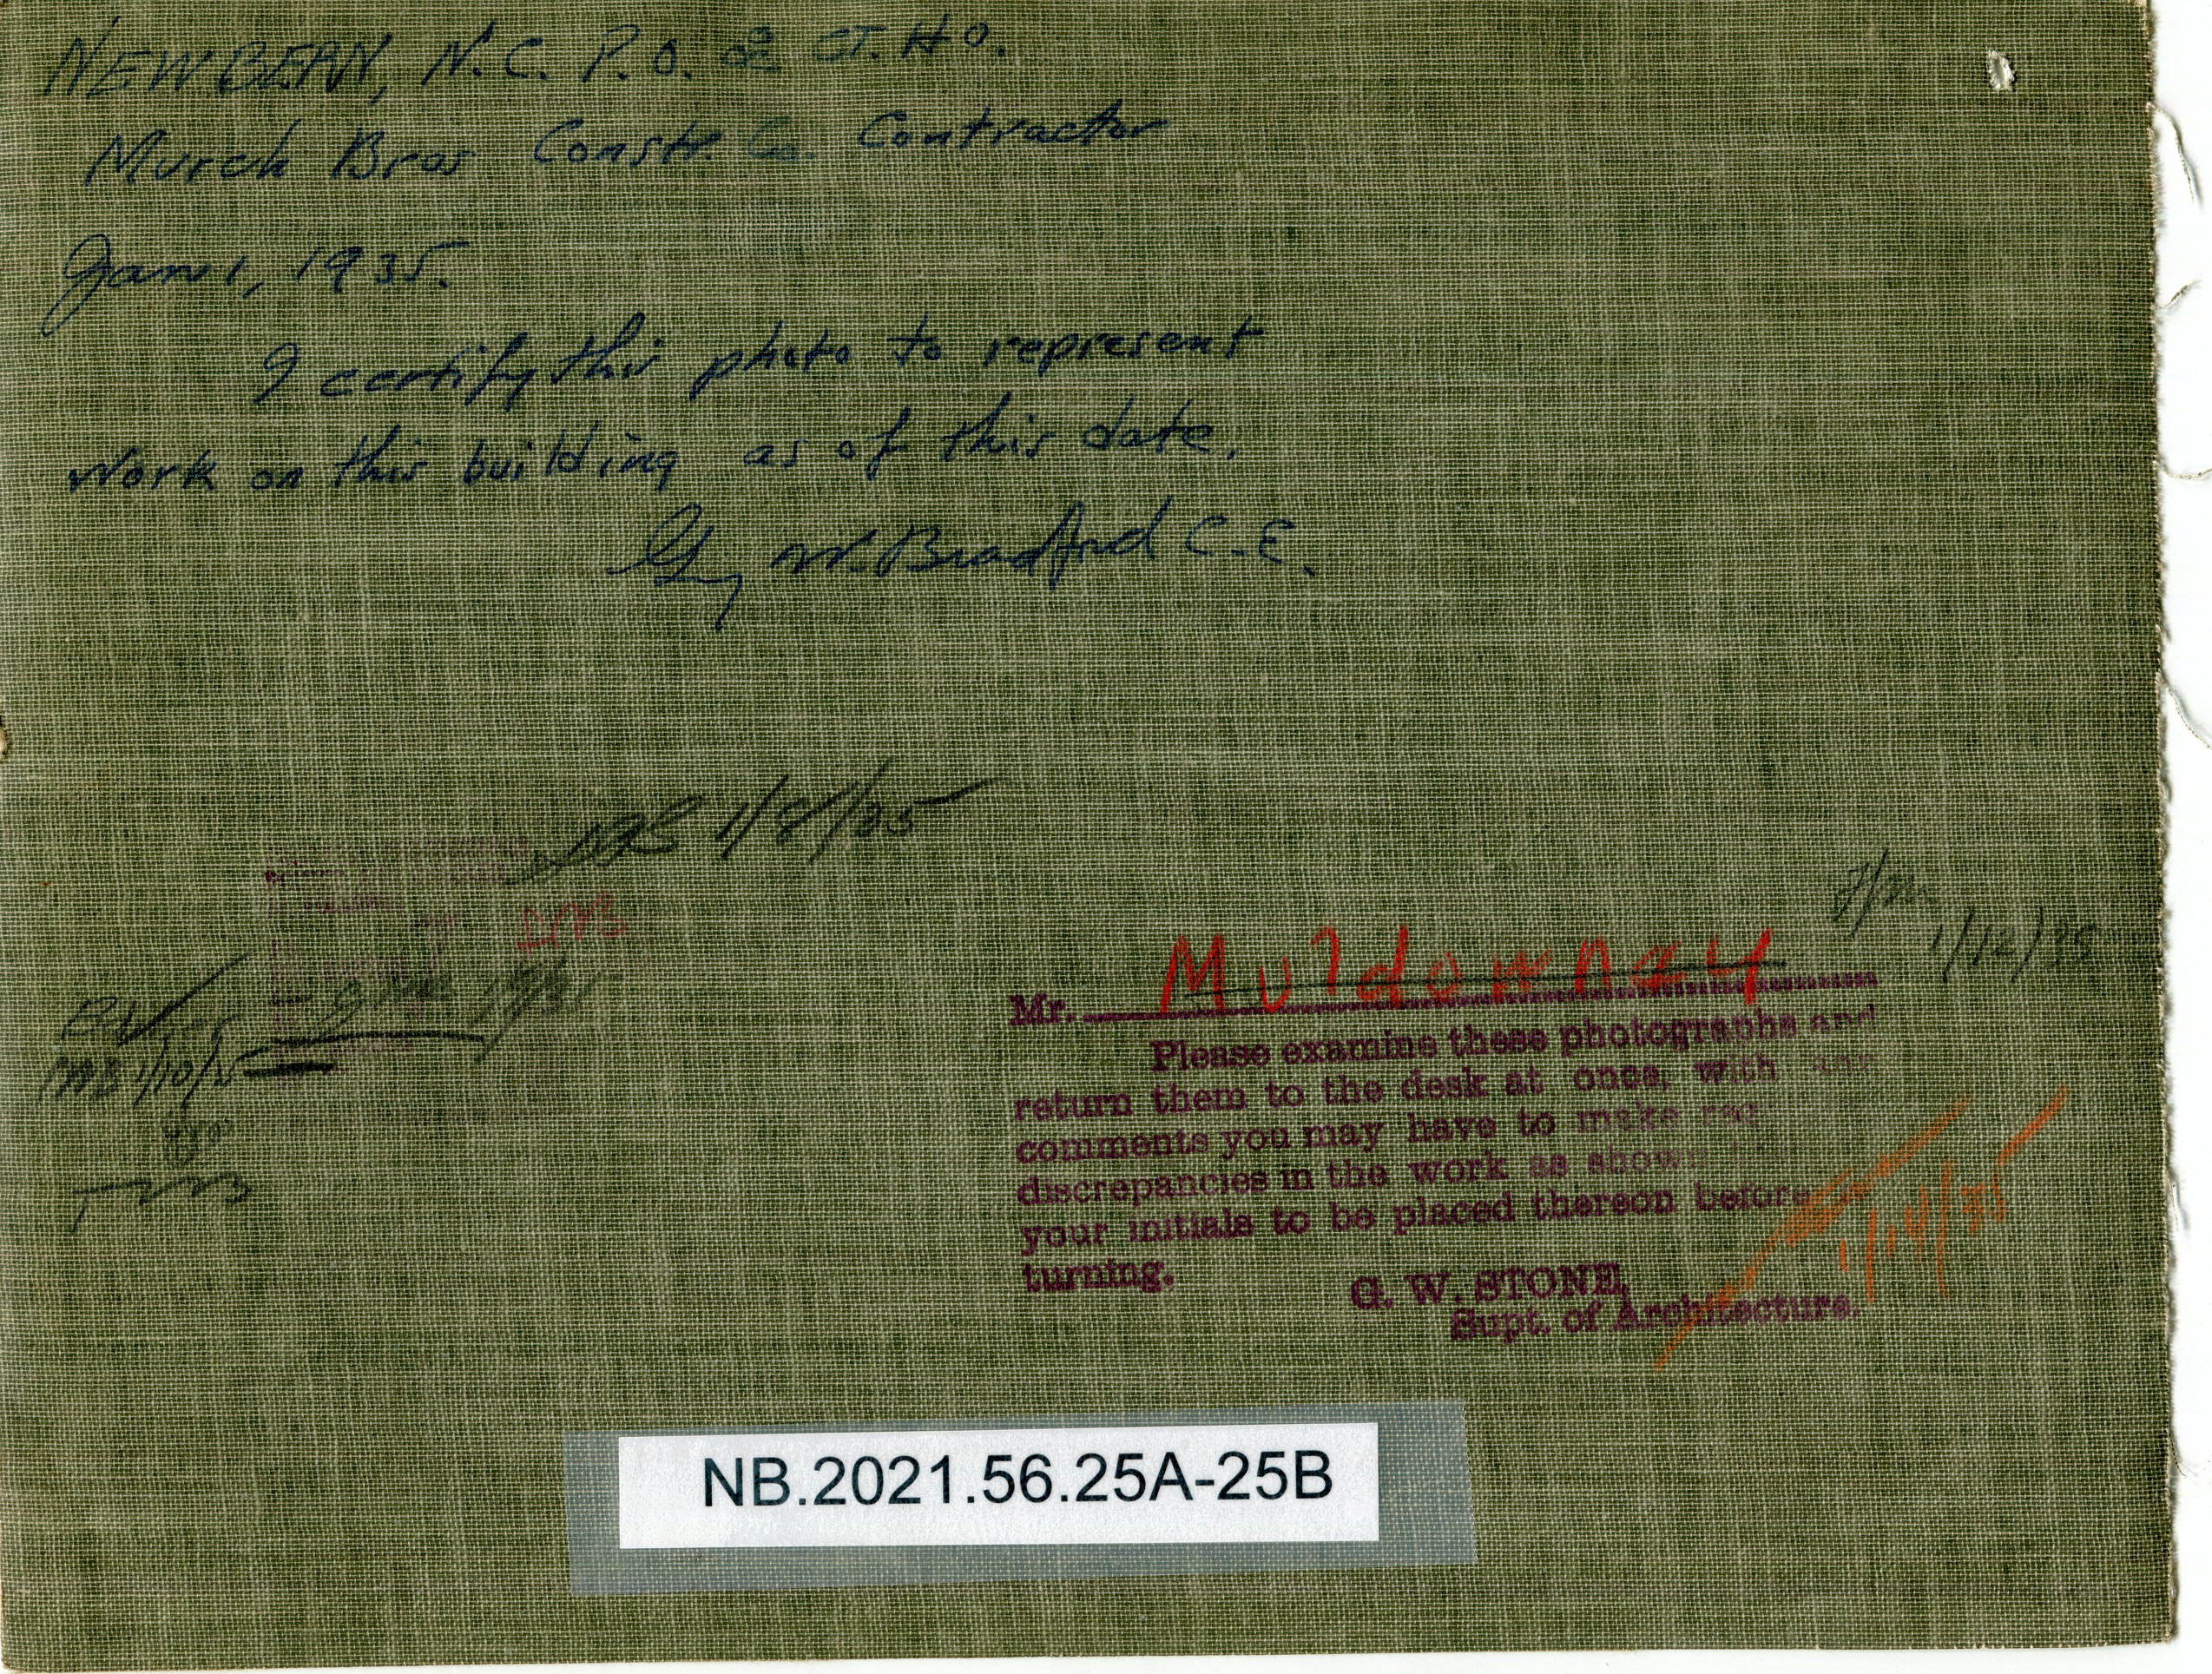 NEW BERN, N.C. P.O. & CT. HO.
Murch Bros Constr. Co. Contractor
Jan 1, 1935.
I certify this photo to represent
work on this building as of this date.
Guy W. Bradford C.E.
1/8/35
1/12/35
Mr. Muldowney
Please examine these photographs and
return them to the desk at once, with any
comments you may have to make
discrepancies in the work as shown
your initials to be placed thereon before
turning.
1/14/35
G. W. STONE,
Supt. of Architecture.
NB.2021.56.25A-25B